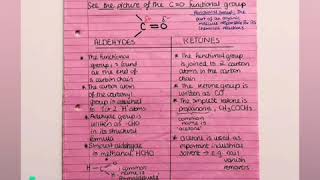 See the picture of the C=O functional group
Functional Group: The
part of an organic
molecule responsible for its
chemical reactions
δ+ δ-
C=O
ALDEHYDES
KETONES
• The functional
group is found
at the end of
a carbon chain
• The carbon atom
of the carbonyl
group is attached
to 1 or 2 H atoms
• Aldehyde group is
written as -CHO
in its structural
formula
• Simplest aldehyde
is methanal, HCHO
H
C
common
name is
formaldehyde
• The functional group
is joined to 2 carbon
atoms in the carbon
chain
• The ketone group is
written as CO
• The simplest ketone is
propanone, CH3COCH3
common
name is
acetone
• Acetone is used as
important industrial
solvent → e.g. nail
varnish
removers